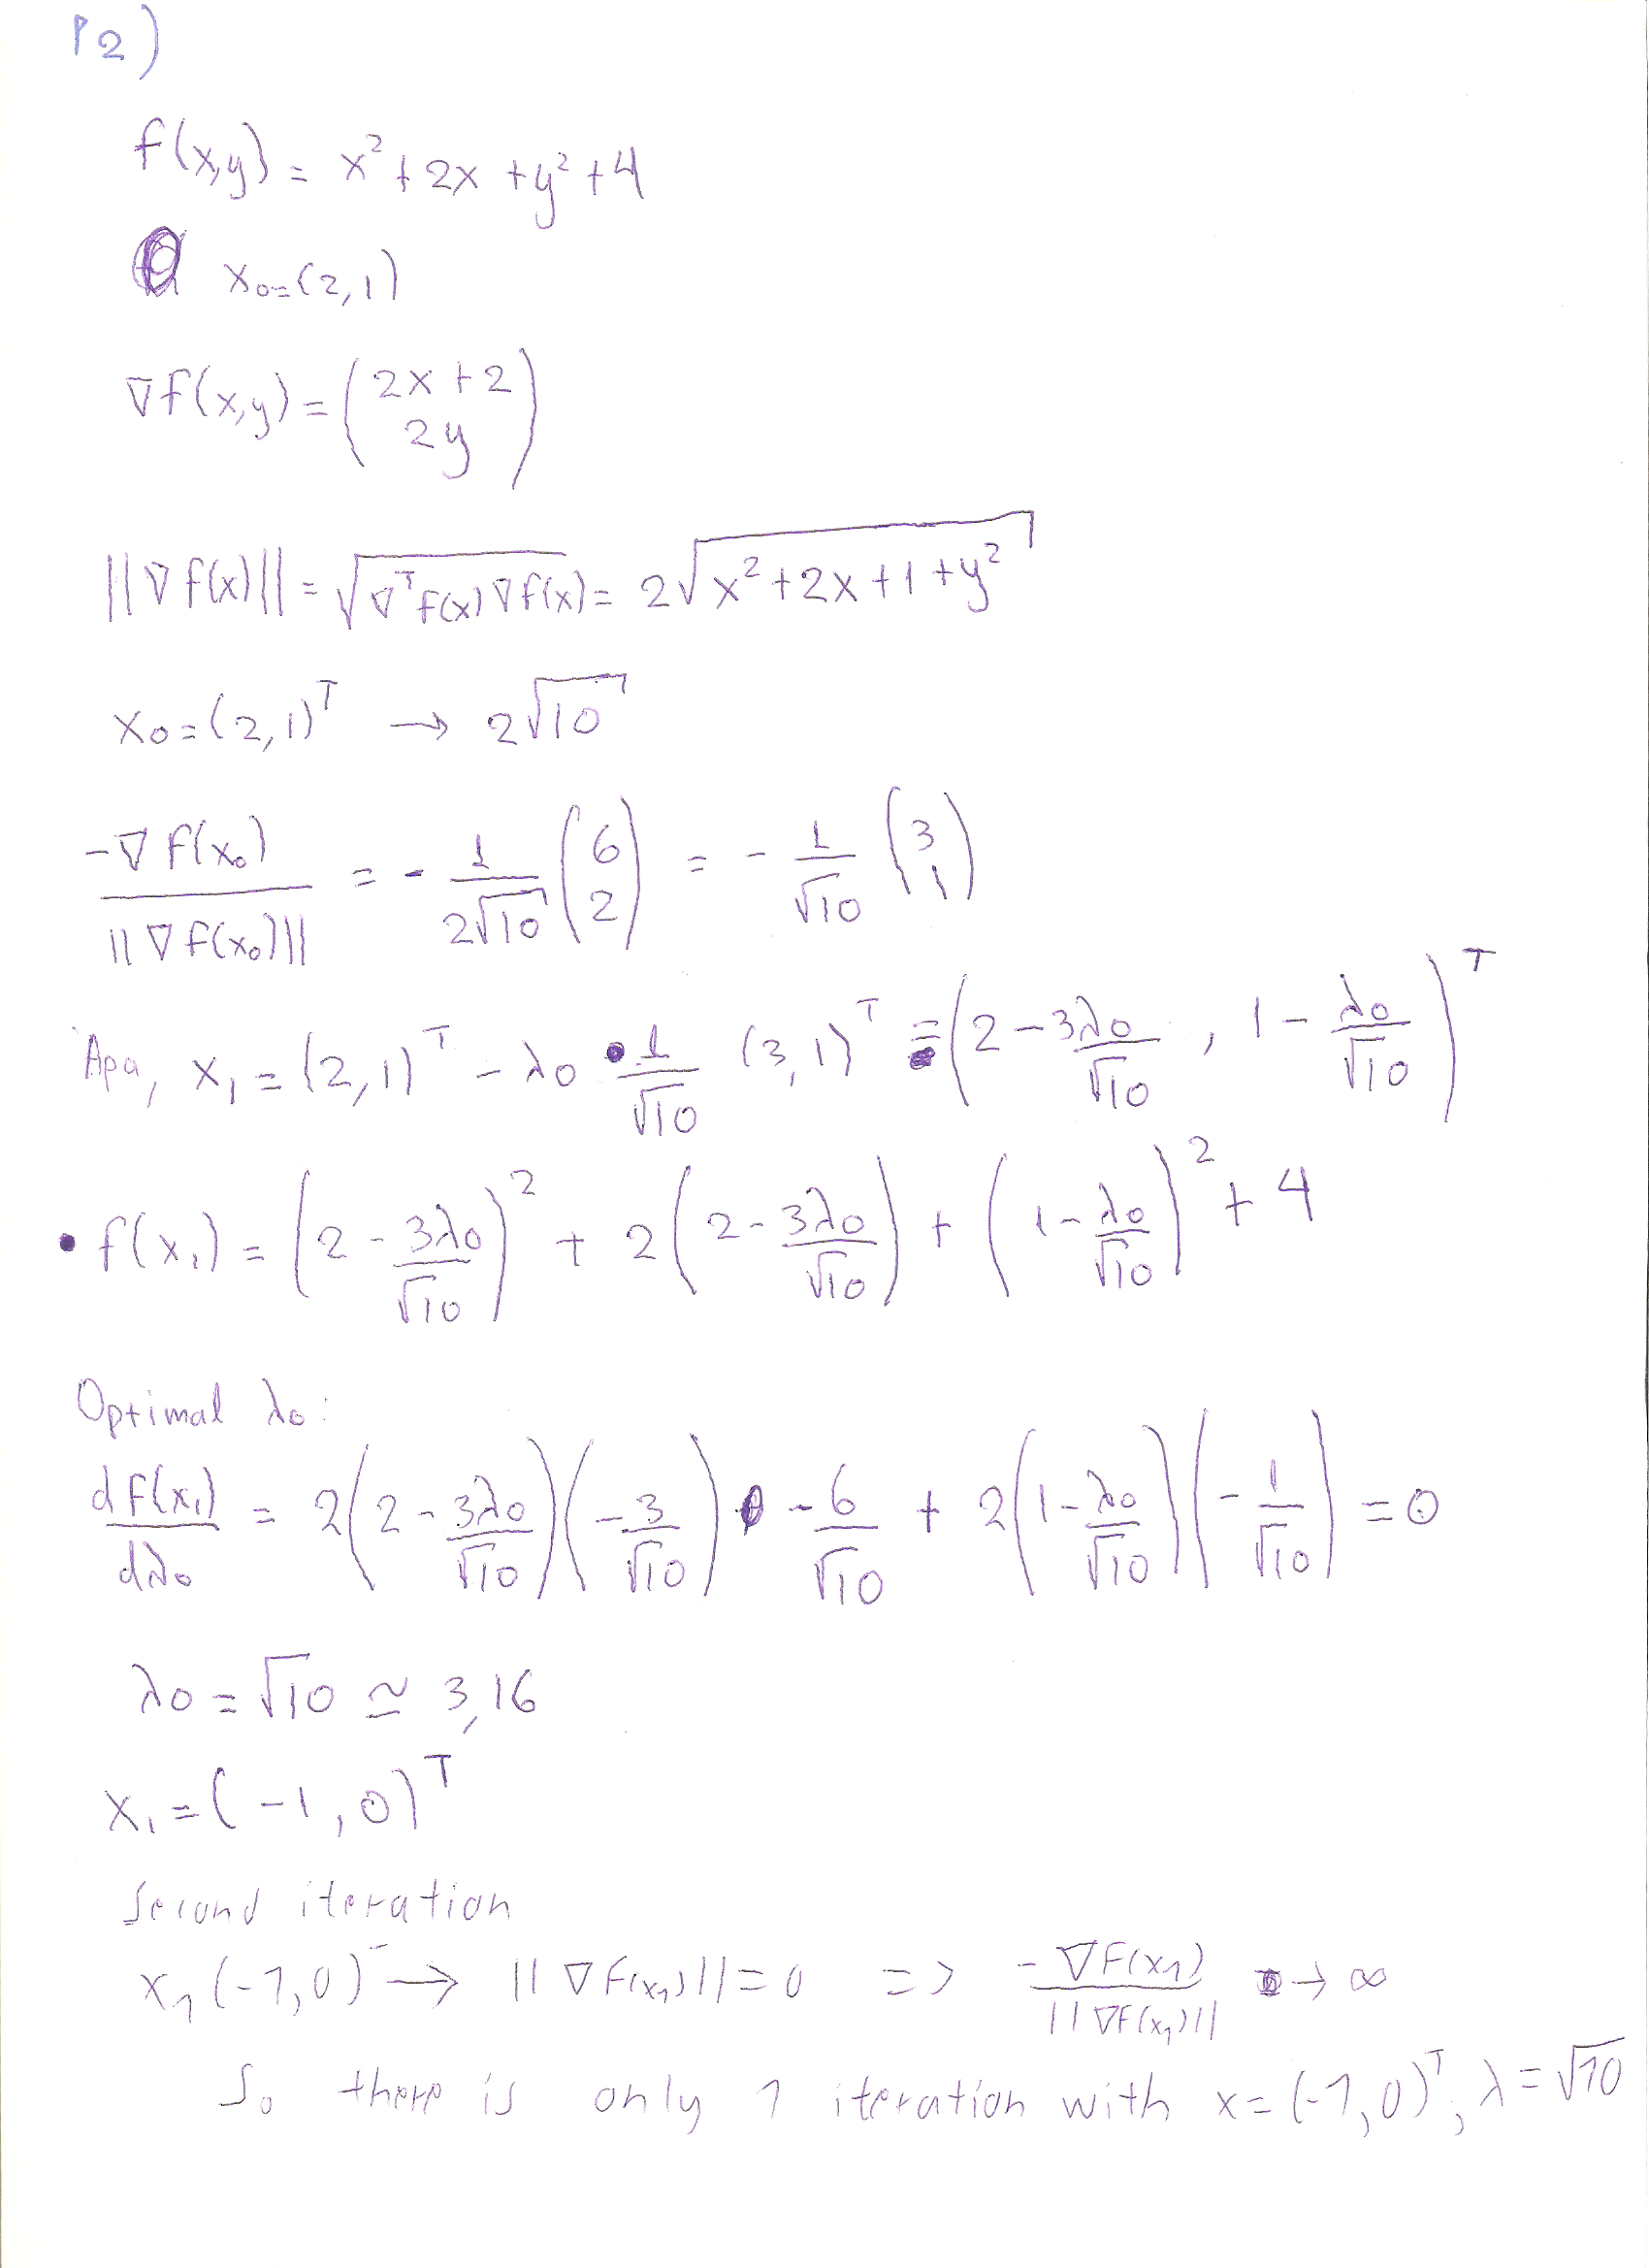 P2)
f(x,y) = x² + 2x + y² + 4
x₀ = (2,1)
∇f(x,y) = (2x+2 2y)
||∇f(x)|| = √(∇ᵀf(x)∇f(x)) = 2√(x²+2x+1+y²)
x₀ = (2,1)ᵀ → 2√10
-∇f(x₀) / ||∇f(x₀)|| = - 1/(2√10) (6 2) = - 1/√10 (3 1)
Άρα, x₁ = (2,1)ᵀ - λ₀ · 1/√10 (3,1)ᵀ = (2 - 3λ₀/√10 , 1 - λ₀/√10)ᵀ
• f(x₁) = (2 - 3λ₀/√10)² + 2(2 - 3λ₀/√10) + (1 - λ₀/√10)² + 4
Optimal λ₀:
df(x₁)/dλ₀ = 2(2 - 3λ₀/√10)(-3/√10) - 6/√10 + 2(1 - λ₀/√10)(-1/√10) = 0
λ₀ = √10 ≃ 3,16
x₁ = (-1,0)ᵀ
Second iteration
x₁(-1,0)ᵀ → ||∇f(x₁)|| = 0 => -∇f(x₁) / ||∇f(x₁)|| → ∞
So there is only 1 iteration with x = (-1,0)ᵀ, λ = √10